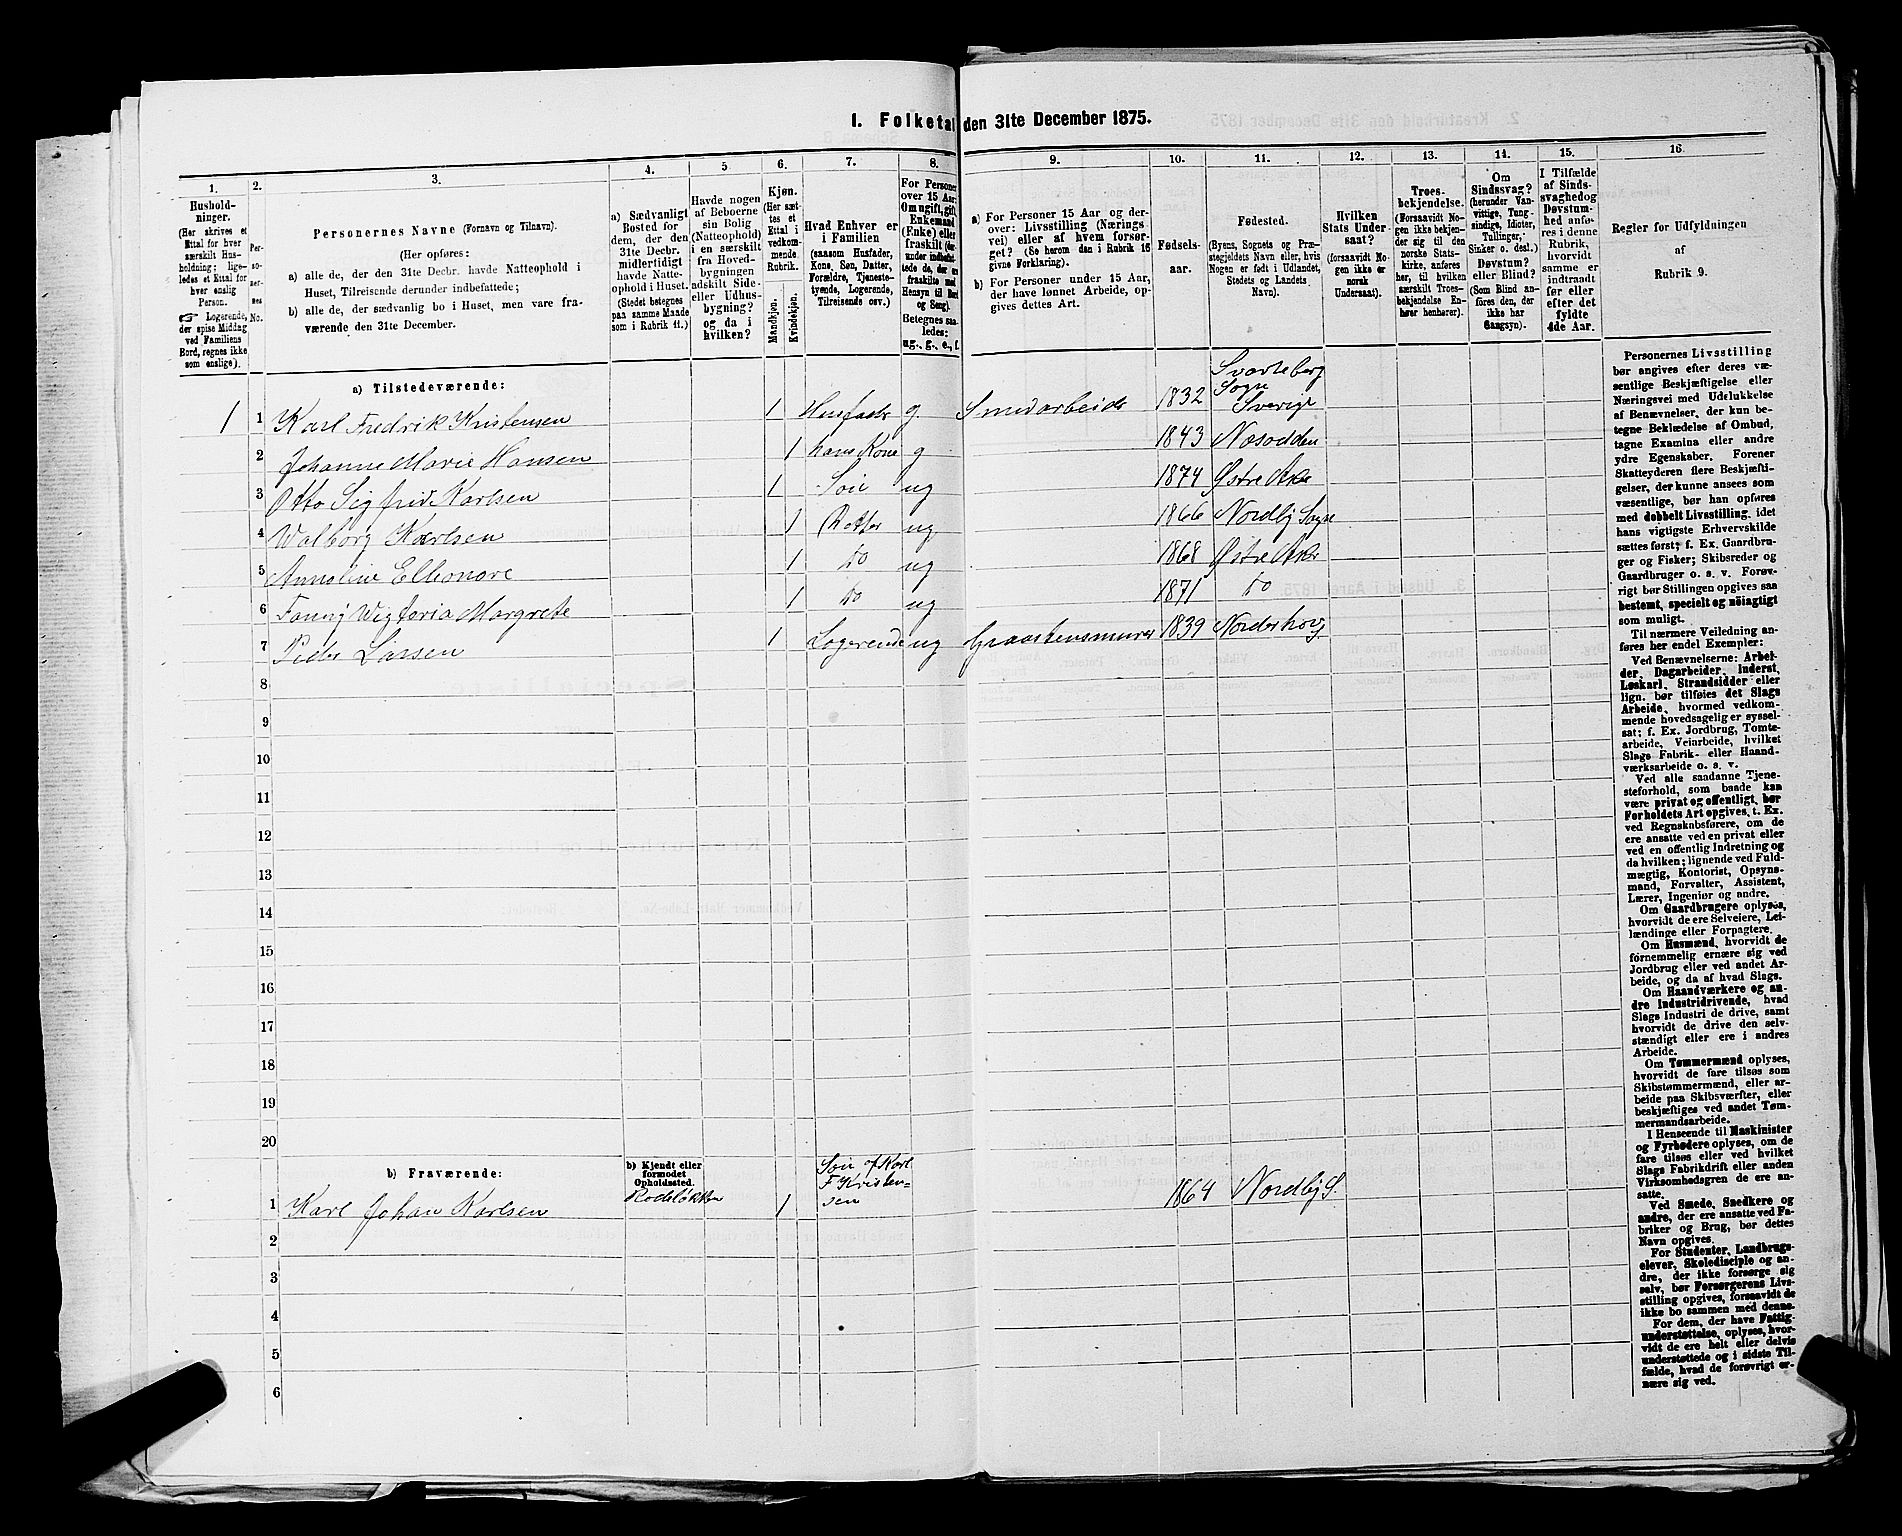 I. Folketal den 31te December 1875.
1.
2.
3.
4.
5.
6.
7.
8.
9.
10.
11.
12.
13.
14.
15.
16.
Hushold-
ninger.
(Her skrives et
Ettal for hver
særskilt Hus-
holdning; lige-
ledes et Ettal for
hver enslig
Person.
☞ Logerende,
der spise Middag
ved Familiens
Bord, regnes ikke
som enslige).
Per-
so-
ner-
nes
No.
Personernes Navne (Fornavn og Tilnavn).
(Her opføres:
a) alle de, der den 31te Decbr. havde Natteophold i
Huset, Tilreisende derunder indbefattede;
b) alle de, der sædvanlig bo i Huset, men vare fra-
værende den 31te December.
a) Sædvanligt
Bosted for
dem, der den
31te Decbr.
midlertidigt
havde Natte-
ophold i Huset.
(Stedet betegnes
paa samme Maade
som i Rubrik 11.)
Havde nogen
af Beboerne
sin Bolig
(Natteophold)
i en særskilt
fra Hoved-
bygningen
adskilt Side-
eller Udhus-
bygning?
og da i
hvilken?
Kjøn.
(Her sæt-
tes et
Ettal i
vedkom-
mende
Rubrik.
Mandkjøn.
Kvindekjøn.
Hvad Enhver er
i Familien
(saasom Husfader,
Kone, Søn, Datter,
Forældre, Tjeneste-
tyende, Logerende,
Tilreisende osv.)
For Personer
over 15 Aar:
Om ugift, gift,
Enkemand
(Enke) eller
fraskilt (der-
under indbefat-
tede de, der ere
fraskilte med
Hensyn til Bord
og Seng).
Betegnes saa-
ledes:
ug., g., e., f.
a) For Personer 15 Aar og der-
over: Livsstilling (Nærings-
vei) eller af hvem forsør-
get? (Se herom den i Rubrik 16
givne Forklaring).
b) For Personer under 15 Aar,
der have lønnet Arbeide, op-
gives dettes Art.
Fødsels-
aar.
Fødested.
(Byens, Sognets og Præ-
stegjeldets Navn eller, hvis
Nogen er født i Udlandet,
Stedets og Landets
Navn).
Hvilken
Stats Under-
saat?
(forsaavidt No-
gen ikke er
norsk
Undersaat).
Troes-
bekjendelse.
(Forsaavidt No-
gen ikke bekjen-
der sig til den
norske Stats-
kirke, anføres
her, til hvilken
særskilt Troes-
bekjendelse En-
hver henhører).
Om
Sindssvag?
(herunder Van-
vittige, Tung-
sindige, Idioter,
Tullinger,
Sinker o. desl.)
Døvstum?
eller Blind?
(Som Blind an-
føres den, der
ikke har
Gangsyn).
I Tilfælde
af Sinds-
svaghed og
Døvstum-
hed anfø-
res i denne
Rubrik,
hvorvidt
samme er
indtraadt
før eller
efter det
fyldte
4de Aar.
Regler for Udfyldningen
af
Rubrik 9.
a) Tilstedeværende:
1 1 Karl Fredrik Kristensen 1 Husfader g Smedarbeider 1832 Svarteborg Sogn Sverige
2 Johanne Marie Hansen 1 hans Kone g 1843 Næsodden
3 Otto Sigfrid Karlsen 1 Søn ug 1874 Østre Aker
4 Walborg Karlsen 1 Datter ug 1866 Nordby Sogn
5 Annoline Elleonore 1 do ug 1868 Østre Aker
6 Fanny Wigtoria Margrete 1 do ug 1871 do
7 Peder Larsen 1 Logerende ug Graastensmurer 1839 Norderhov
8
9
10
11
12
13
14
15
16
17
18
19
20
b) Fraværende:
b) Kjendt eller
formodet
Opholdssted.
1 Karl Johan Karlsen Rodeløkken 1 Søn af Karl F Kristensen 1864 Nordby S.
2
3
4
5
6
Personernes Livsstilling
bør angives efter deres væ-
sentlige Beskjæftigelse eller
Næringsvei med Udelukkelse
af Benævnelser, der kun be-
tegne Beklædelse af Ombud,
tagne Examina eller andre
ydre Egenskaber. Forener
Skatteyderen flere Beskjæfti-
gelser, der kunne ansees som
væsentlige, bør han opføres
med dobbelt Livsstilling, idet
hans vigtigste Erhvervskilde
sættes først; f. Ex. Gaardbru-
ger og Fisker; Skibsreder og
Gaardbruger o. s. v. Forøv-
rigt bør Stillingen opgives saa
bestemt, specielt og nöiagtigt
som muligt.
Til nærmere Veiledning an-
føres her endel Exempler:
Ved Benævnelserne: Arbei-
der, Dagarbeider, Inderst,
Løskarl, Strandsidder eller
lign. bør tilføies det Slags
Arbeide, hvormed vedkom-
mende hovedsagelig er syssel-
sat; f. Ex. Jordbrug, Tomte-
arbeide, Veiarbeide, hvilket
Slags Fabrik- eller Haand-
værksarbeide o. s. v.
Ved alle saadanne Tjene-
steforhold, som baade kan
være privat og offentligt, bør
Forholdets Art opgives, t. Ex.
ved Regnskabsførere, om de
ere ansatte ved en privat eller
ved en offentlig Indretning og
da hvilken; lignende ved Fuld-
mægtig, Kontorist, Opsyns-
mand, Forvalter, Assistent,
Lærer, Ingeniør og andre.
Om Gaardbrugere oplyses,
hvorvidt de ere Selveiere, Lei-
lændinge eller Forpagtere.
Om Husmænd, hvorvidt de
fornemmelig ernære sig ved
Jordbrug eller ved andet Ar-
beide, og da af hvad Slags.
Om Haandværkere og an-
dre Industridrivende, hvad
Slags Industri de drive, samt
hvorvidt de drive den selv-
stændigt eller ere i andres
Arbeide.
Om Tømmermænd oplyses,
hvorvidt de fare tilsøs som
Skibstømmermænd, eller ar-
beide paa Skibsværfter, eller
beskjæftiges ved andet Tøm-
mermandsarbeide.
I Henseende til Maskinister
og Fyrbødere oplyses, om de
fare tilsøs eller ved hvilket
Slags Fabrikdrift eller anden
Virksomhedsgren de ere an-
satte.
Ved Smede, Snedkere og
andre, der ere ansatte ved Fa-
briker og Brug, bør dettes
Navn opgives.
For Studenter, Landbrugs-
elever, Skoledisciple og an-
dre, der ikke forsørge sig
selv, bør Forsørgerens Livs-
stilling opgives, forsaavidt de
ikke bo sammen med denne.
For dem, der have Fattig-
understøttelse, oplyses, hvor-
vidt de ere helt eller delvis
understøttede og i sidste Til-
fælde, hvad de forøvrigt er-
nære sig ved.